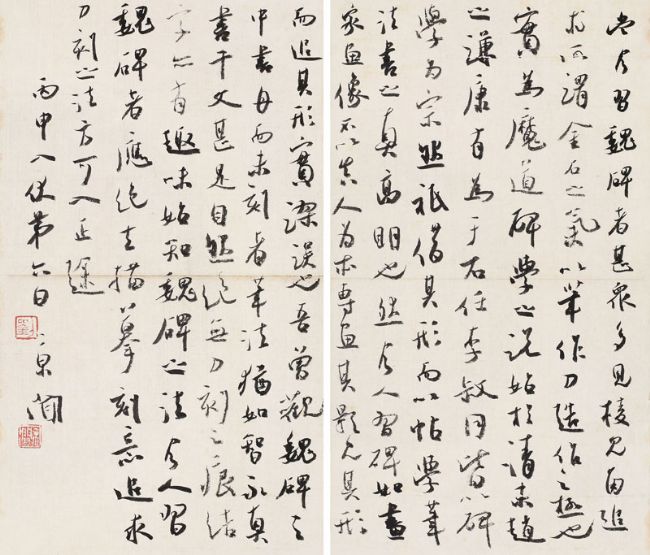 當今習魏碑者甚衆多見棱角面追
求所謂金石之氣以筆作刀造作之極也
實為魔道碑學之說始於清末趙
之謙康有為于右任李叔同皆以碑
學為宗然祇借其形而以帖學筆
法書之真高明也然今人習碑如畫
家畫像不以真人為本專畫其影見其形
而追其形實謬誤也吾曾觀魏碑之
中書丹而未刻者筆法猶如智永真
書千文甚是自然絕無刀刻之痕結
字亦有趣味始知魏碑之法今人習
魏碑者應絕去描摹刻意追求
刀刻之法方可入正途
丙申入伏第六日京聞